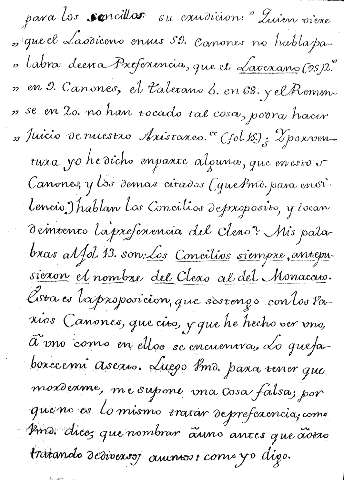 para los sencillos su erudicion: "Quien viere
" que el Laodiceno en sus 59. Canones no habla pa-
" labra de esta Preferencia, que el Lateranο
" en 9. Canones, el Toletano 6. en 68. y el Romin-
" se en 20. no han tocado tal cosa, podra hacer
" juicio de nuestro Aristarco." (fol. 18.); Y por ven-
tura yo he dicho en parte alguna, que en estos
Canones, y los demas citados (que Pmd. para en si-
lencio,) hablan los Concilios de proposito, y tocan
de intento la preferencia del Clero? Mis pala-
bras al fol. 13. son: Los Concilios siempre antepu-
sieron el nombre del Clero al del Monacato.
Esta es la proposicion, que sostengo con los va-
rios Canones, que cito, y que he hecho ver uno,
à uno como en ellos se encuentra, Lo que fa-
borece mi Aserto. Luego Pmd. para tener que
morderme, me supone una cosa falsa; por
que no es lo mismo tratar de preferencia, como
Pmd. dice; que nombrar à uno antes que à otro
tratando de diversos asuntos: como yo digo.